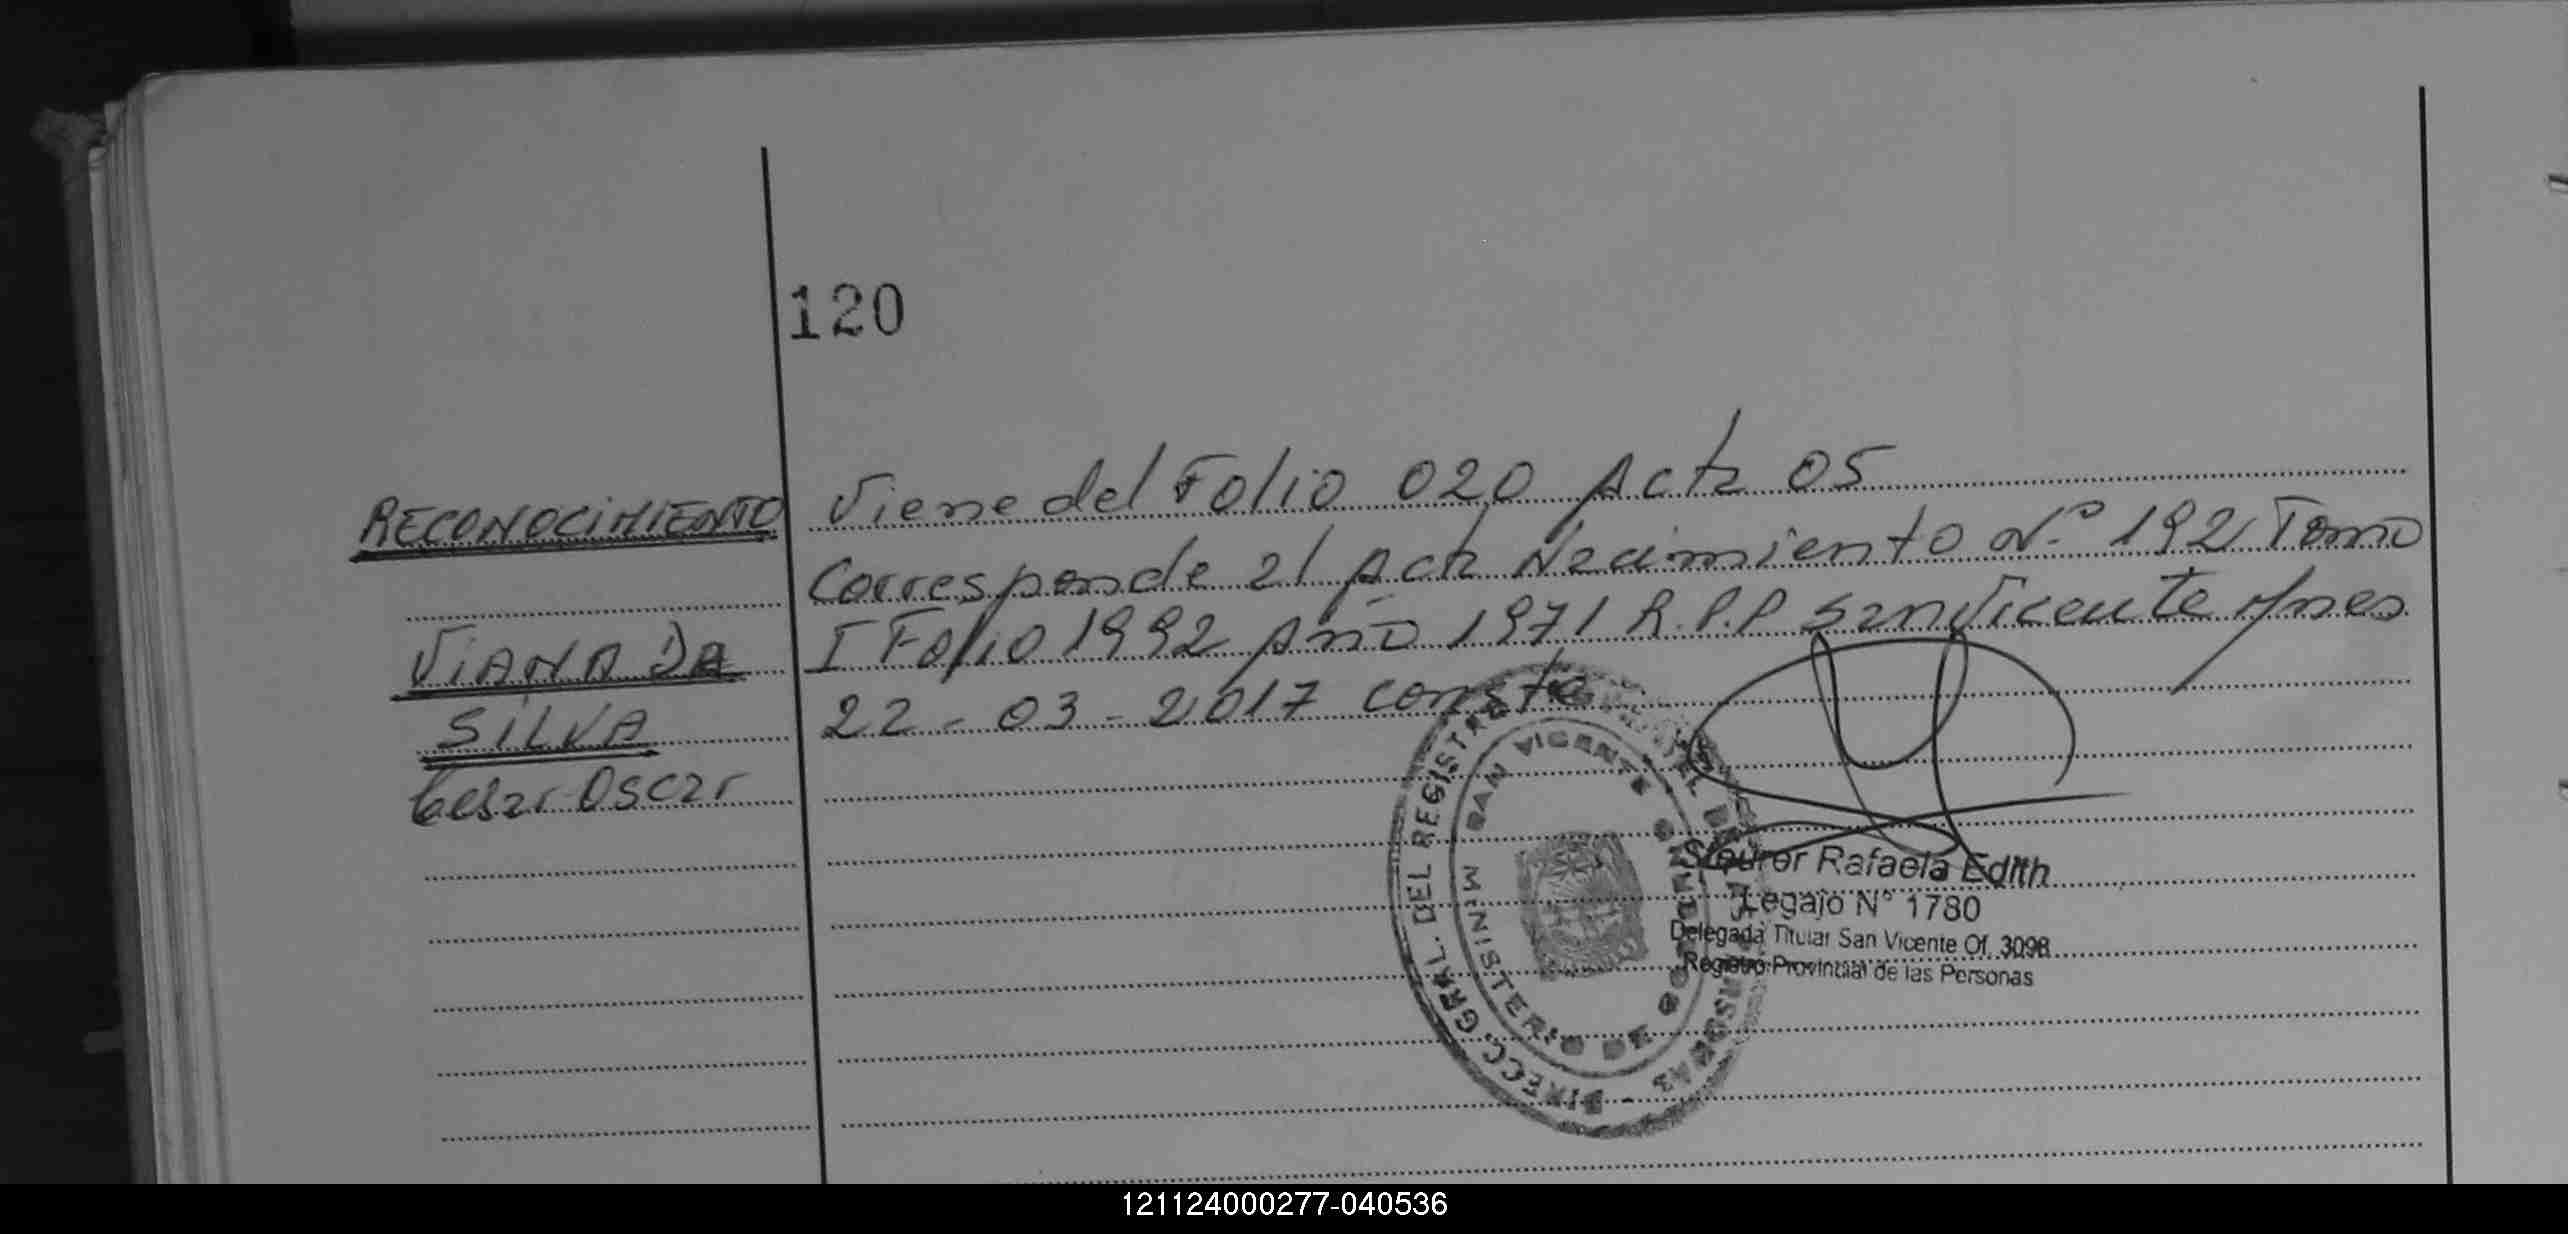 120
RECONOCIMIENTO
VIANA DA
SILVA
Cesar Oscar
Viene del Folio 020 Acta 05
Corresponde al Acta Nacimiento N.º 192 Tomo
I Folio 1992 Año 1971 R.P.P San Vicente Mnes
22 - 03 - 2017 conste
DIRECC. GRAL. DEL REGISTRO
SAN VICENTE
MINISTERIO DE
Rafaela Edith
Legajo N° 1780
Delegada Titular San Vicente Of. 3098
Registro Provincial de las Personas
121124000277-040536